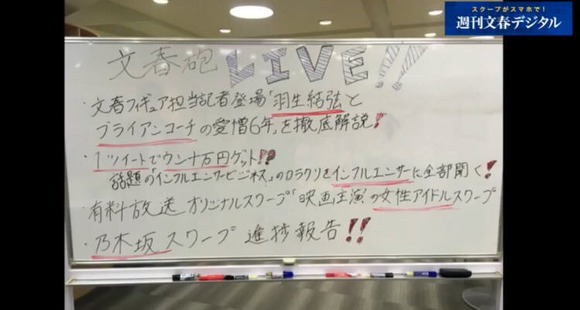 スクープがスマホで!
週刊文春デジタル
文春砲 LIVE!!
・文春フィギュア担当記者登場「羽生結弦と
ブライアンコーチの愛憎6年」を徹底解説!
・1ツイートでウン十万円ゲット!?
話題の「インフルエンサービジネス」のカラクリをインフルエンサーに全部聞く!
・有料放送 オリジナルスクープ「映画主演の女性アイドルスクープ
・乃木坂スクープ 進捗報告!!